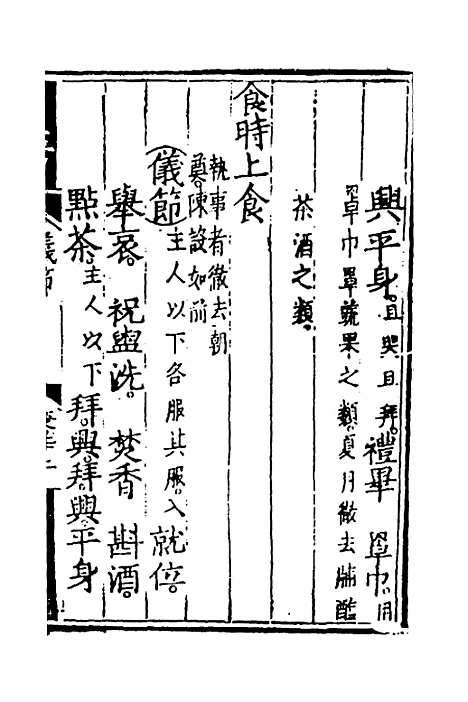 興平身。且哭且拜。禮畢 罩巾。用
罩巾罩蔬果之類。夏月徹去脯醢
茶酒之類。
食時上食
執事者徹去朝
奠。陳設如前
儀節 主人以下各服其服。入 就位。
舉哀。 祝盥洗。 焚香 斟酒。
點茶。主人以下 拜。興。拜。興。平身
儀節